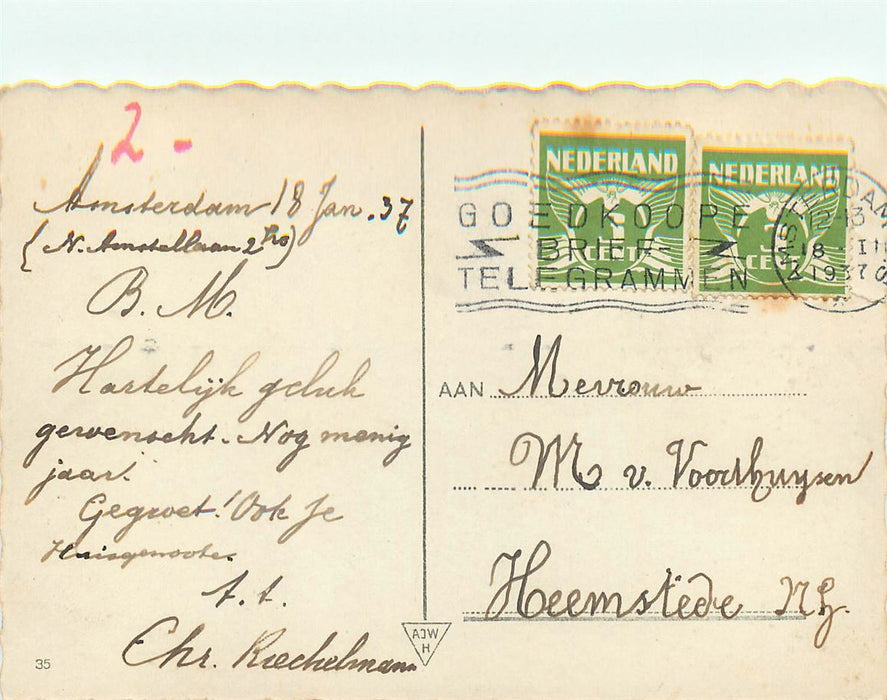 2 -
Amsterdam 18 Jan. 37
(N. Amstellaan 2 hs)
B. M.
Hartelijk geluk
gewenscht. Nog menig
jaar!
Gegroet! Ook je
Huisgenooten
t. t.
Chr. Rieckelmann
35
NEDERLAND
CENT
NEDERLAND
3
CENT
GOEDKOOPE
BRIEF-
TELEGRAMMEN
12-13
18 I
1937
AAN Mevrouw
M v. Voorthuysen
Heemstede N.H.
AJW
H